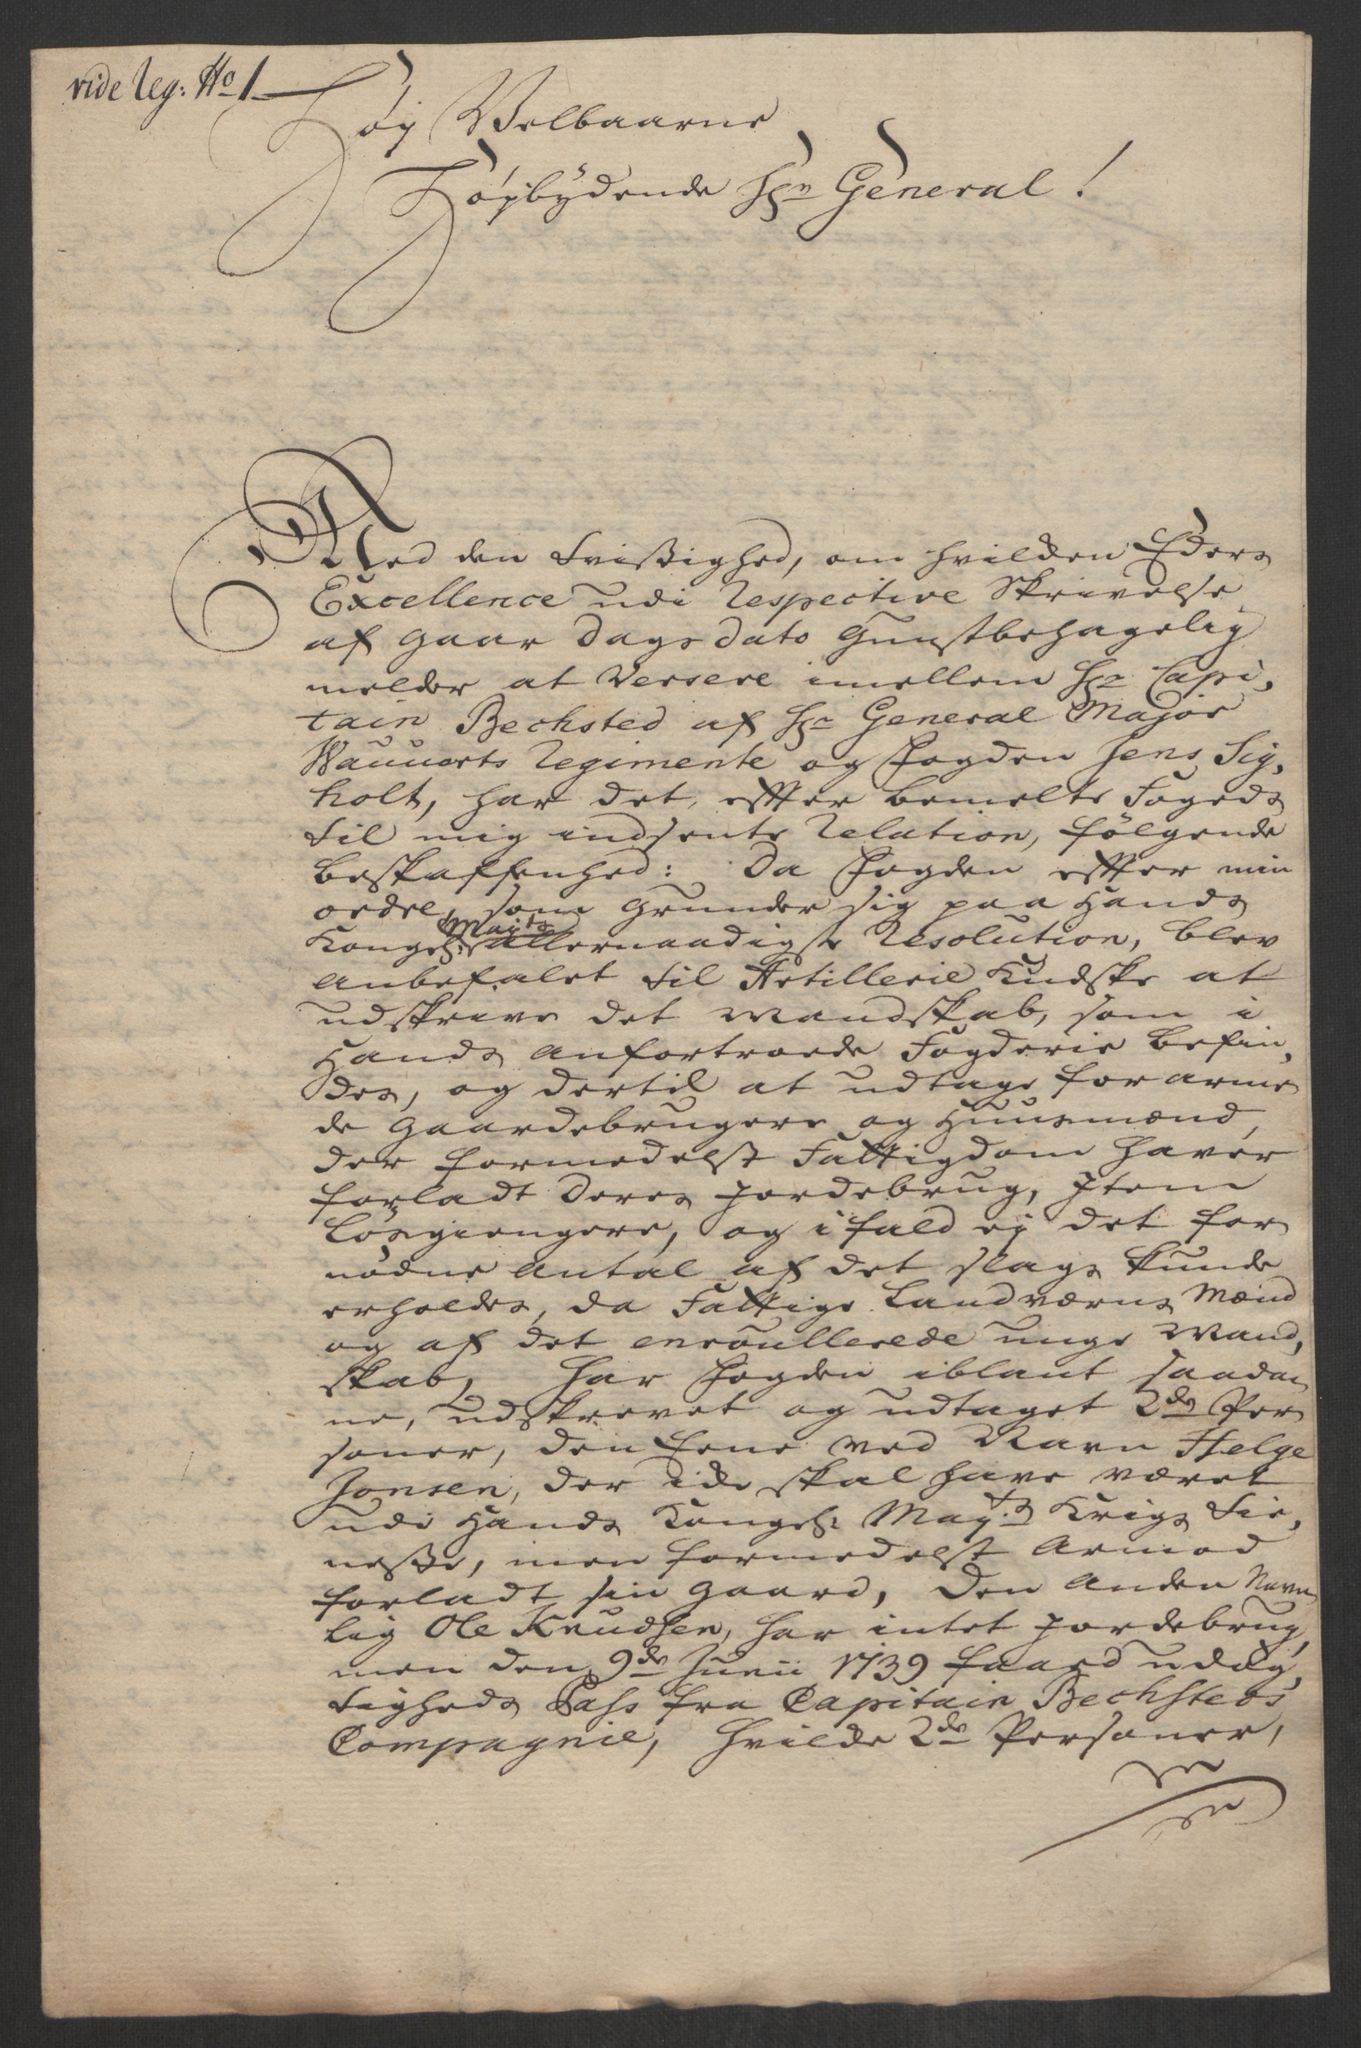 vide Reg: No 1
Høy Velbaarne
Høybydende Hr General!
Med den Tvistighed, om hvilken Eders
Excellence udi Respective Skrivelse
af Gaar Dags Dato Gunstbehagelig
melder at Versere imellem Hr Capi-
tain Bechsted af Hr General Major
Wauuerts Regimente og Fogden Jens Sig-
holt, har det, effter bemelte Fogeds
til mig indsente Relation, følgende
beskaffenhed: Da Fogden effter min
ordre, som Grunder sig paa Hands
Kongel: Mayts Allernaadigste Resolution, blev
Anbefalet til Artillerie Kudske at
udskrive det Mandskab, som i
Hands Anfortroede Fogderie befin-
des, og dertil at udtage forarme-
de Gaardebrugere og Huusmænd,
der formedelst Fattigdom haver
forladt deres Jordebrug, Item
Løsgiengere, og i fald ej det for
nødne Antal af det slags kunde
erholdes, da Fattige Landværns Mænd
og af det enroullerede unge Mand-
skab, har Fogden iblant saadan
ne, udskrevet og udtaget 2de Per
soner, den Eene ved Navn Helge
Jonsen, der ide skal have været
udi Hands Kongel: Mayts Krigs Tie-
neste, men formedelst Armod
forladt sin Gaard, den Anden Navn
lig Ole Knudsen, har intet Jordebrug,
men den 9de Junii 1739 faaed udög-
tigheds Pass fra Capitain Bechsteds
Compagnie, hvilke 2de Personer,